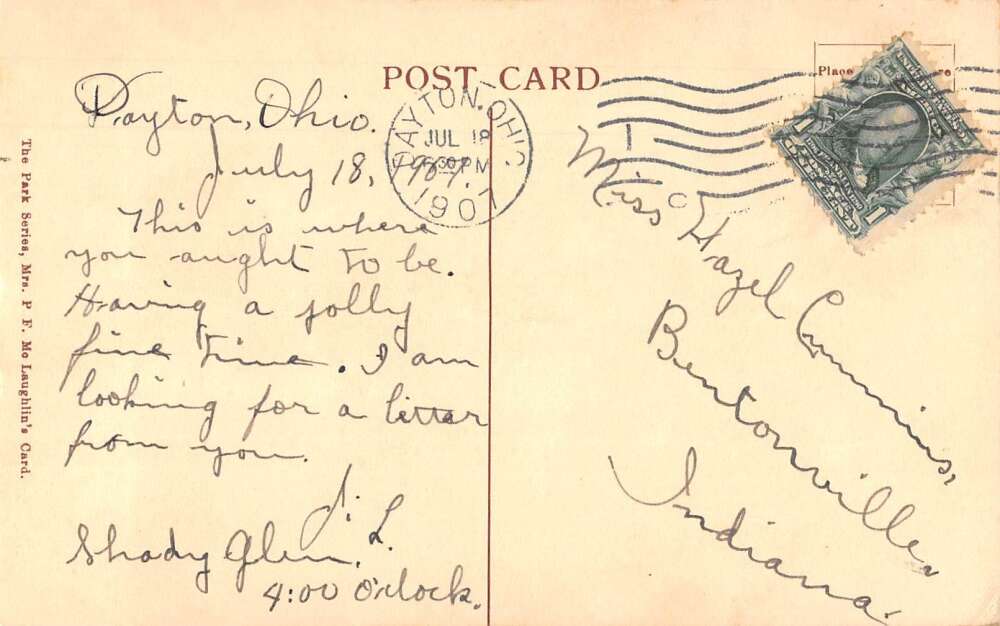 POST CARD
Place
re
DAYTON, OHIO
JUL 18
PM
1907
1
C
1
1
Dayton, Ohio.
July 18, 1907.
This is where
you aught to be.
Having a jolly
fine time. I am
looking for a letter
from you.
J. L.
Shady Glen.
4:00 O'clock.
Miss Hazel Cummins,
Bentonville,
Indiana.
The Park Series, Mrs. P F. Mc Laughlin's Card.